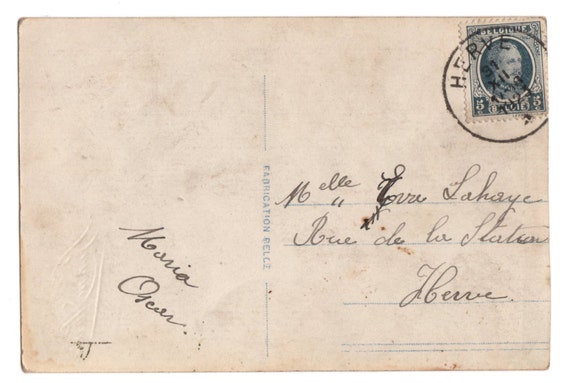 HERVE
BELGIQUE
5 5
BELGIË
FABRICATION BELGE
Melle Lahaye
Rue de la Station
Herve.
Maria
Oscar.